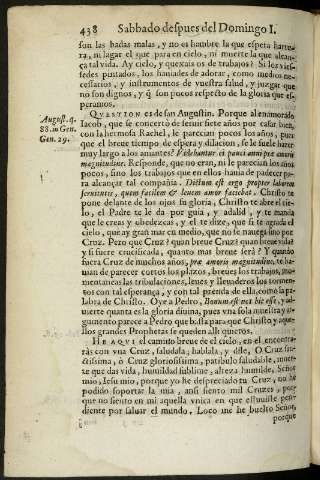 438 Sabbado despues del Domingo I.
son las hadas malas, y no es hambre la que espera hartu-
ra, ni lagar el que para en cielo, ni muerte la que alcan-
ça tal vida. Ay cielo, y quexais os de trabajos! Si los
sedes pintados, los haniades de adorar, como medios ne-
cessarios, y instrumentos de vuestra salud, y juzgar que
no son dignos, y q̃ son pocos respeto de la gloria que es-
peramos.
August. q.
88. in Gen.
Gen. 29.
QVESTION es de san Augustin. Porque al enamorado
Iacob, que se concertò de seruir siete años por casar bien,
con la hermosa Rachel, le parecian pocos los años, pues
que el breue tiempo de espera y dilacion, se le suele hazer
muy largo a los amantes? Videbantur ei pauci anni præ amoris
magnitudine. Responde, que no eran, ni le parecian los años
pocos, sino los trabajos que en ellos hauia de padecer pa-
ra alcançar tal compañia. Dictum est ergo propter laborem
seruientis, quem facilem & leuem amor faciebat. Christo te
pone delante de los ojos su gloria, Christo te abre el cie-
lo, el Padre te le da por guia, y adalid, y te manda
que le creas y obedezcas, y el te dize, que si te agrada el
cielo, que ay gran mar en medio, que no se nauega sino por
Cruz. Pero que Cruz? quan breue Cruz? quan breue vida?
y si fuere crucificada, quanto mas breue serà? Y quando
fuera Cruz de muchos años, præ amoris magnitudine, te ha-
uian de parecer cortos los plazos, breues los trabajos, mo-
mentaneas las tribulaciones, leues y lleuaderos los tormen-
tos con tal esperança, y con tal prenda de ella, como la pa-
labra de Christo. Oye a Pedro, Bonum est nos hic esse, y ad-
uierte quanta es la gloria diuina, pues vna sola muestra y ar-
gumento parece a Pedro que basta para que Christo y aque-
llos grandes Prophetas se queden alli quietos.
HE AQVI el camino breue de el cielo, en el encontra-
ràs con vna Cruz, saludala, hablala, y dile, O Cruz san-
ctissima, ò Cruz gloriosissima, patibulo saludable, muer-
te que das vida, humildad sublime, alteza humilde, Señor
mio, Iesu mio, porque yo he despreciado tu Cruz, no he
podido soportar la mia, ansi siento mil Cruzes, porque
que no siento en mi aquella vnica en que estuuiste pen-
diente por saluar el mundo, Loco me he buelto Señor,
porque